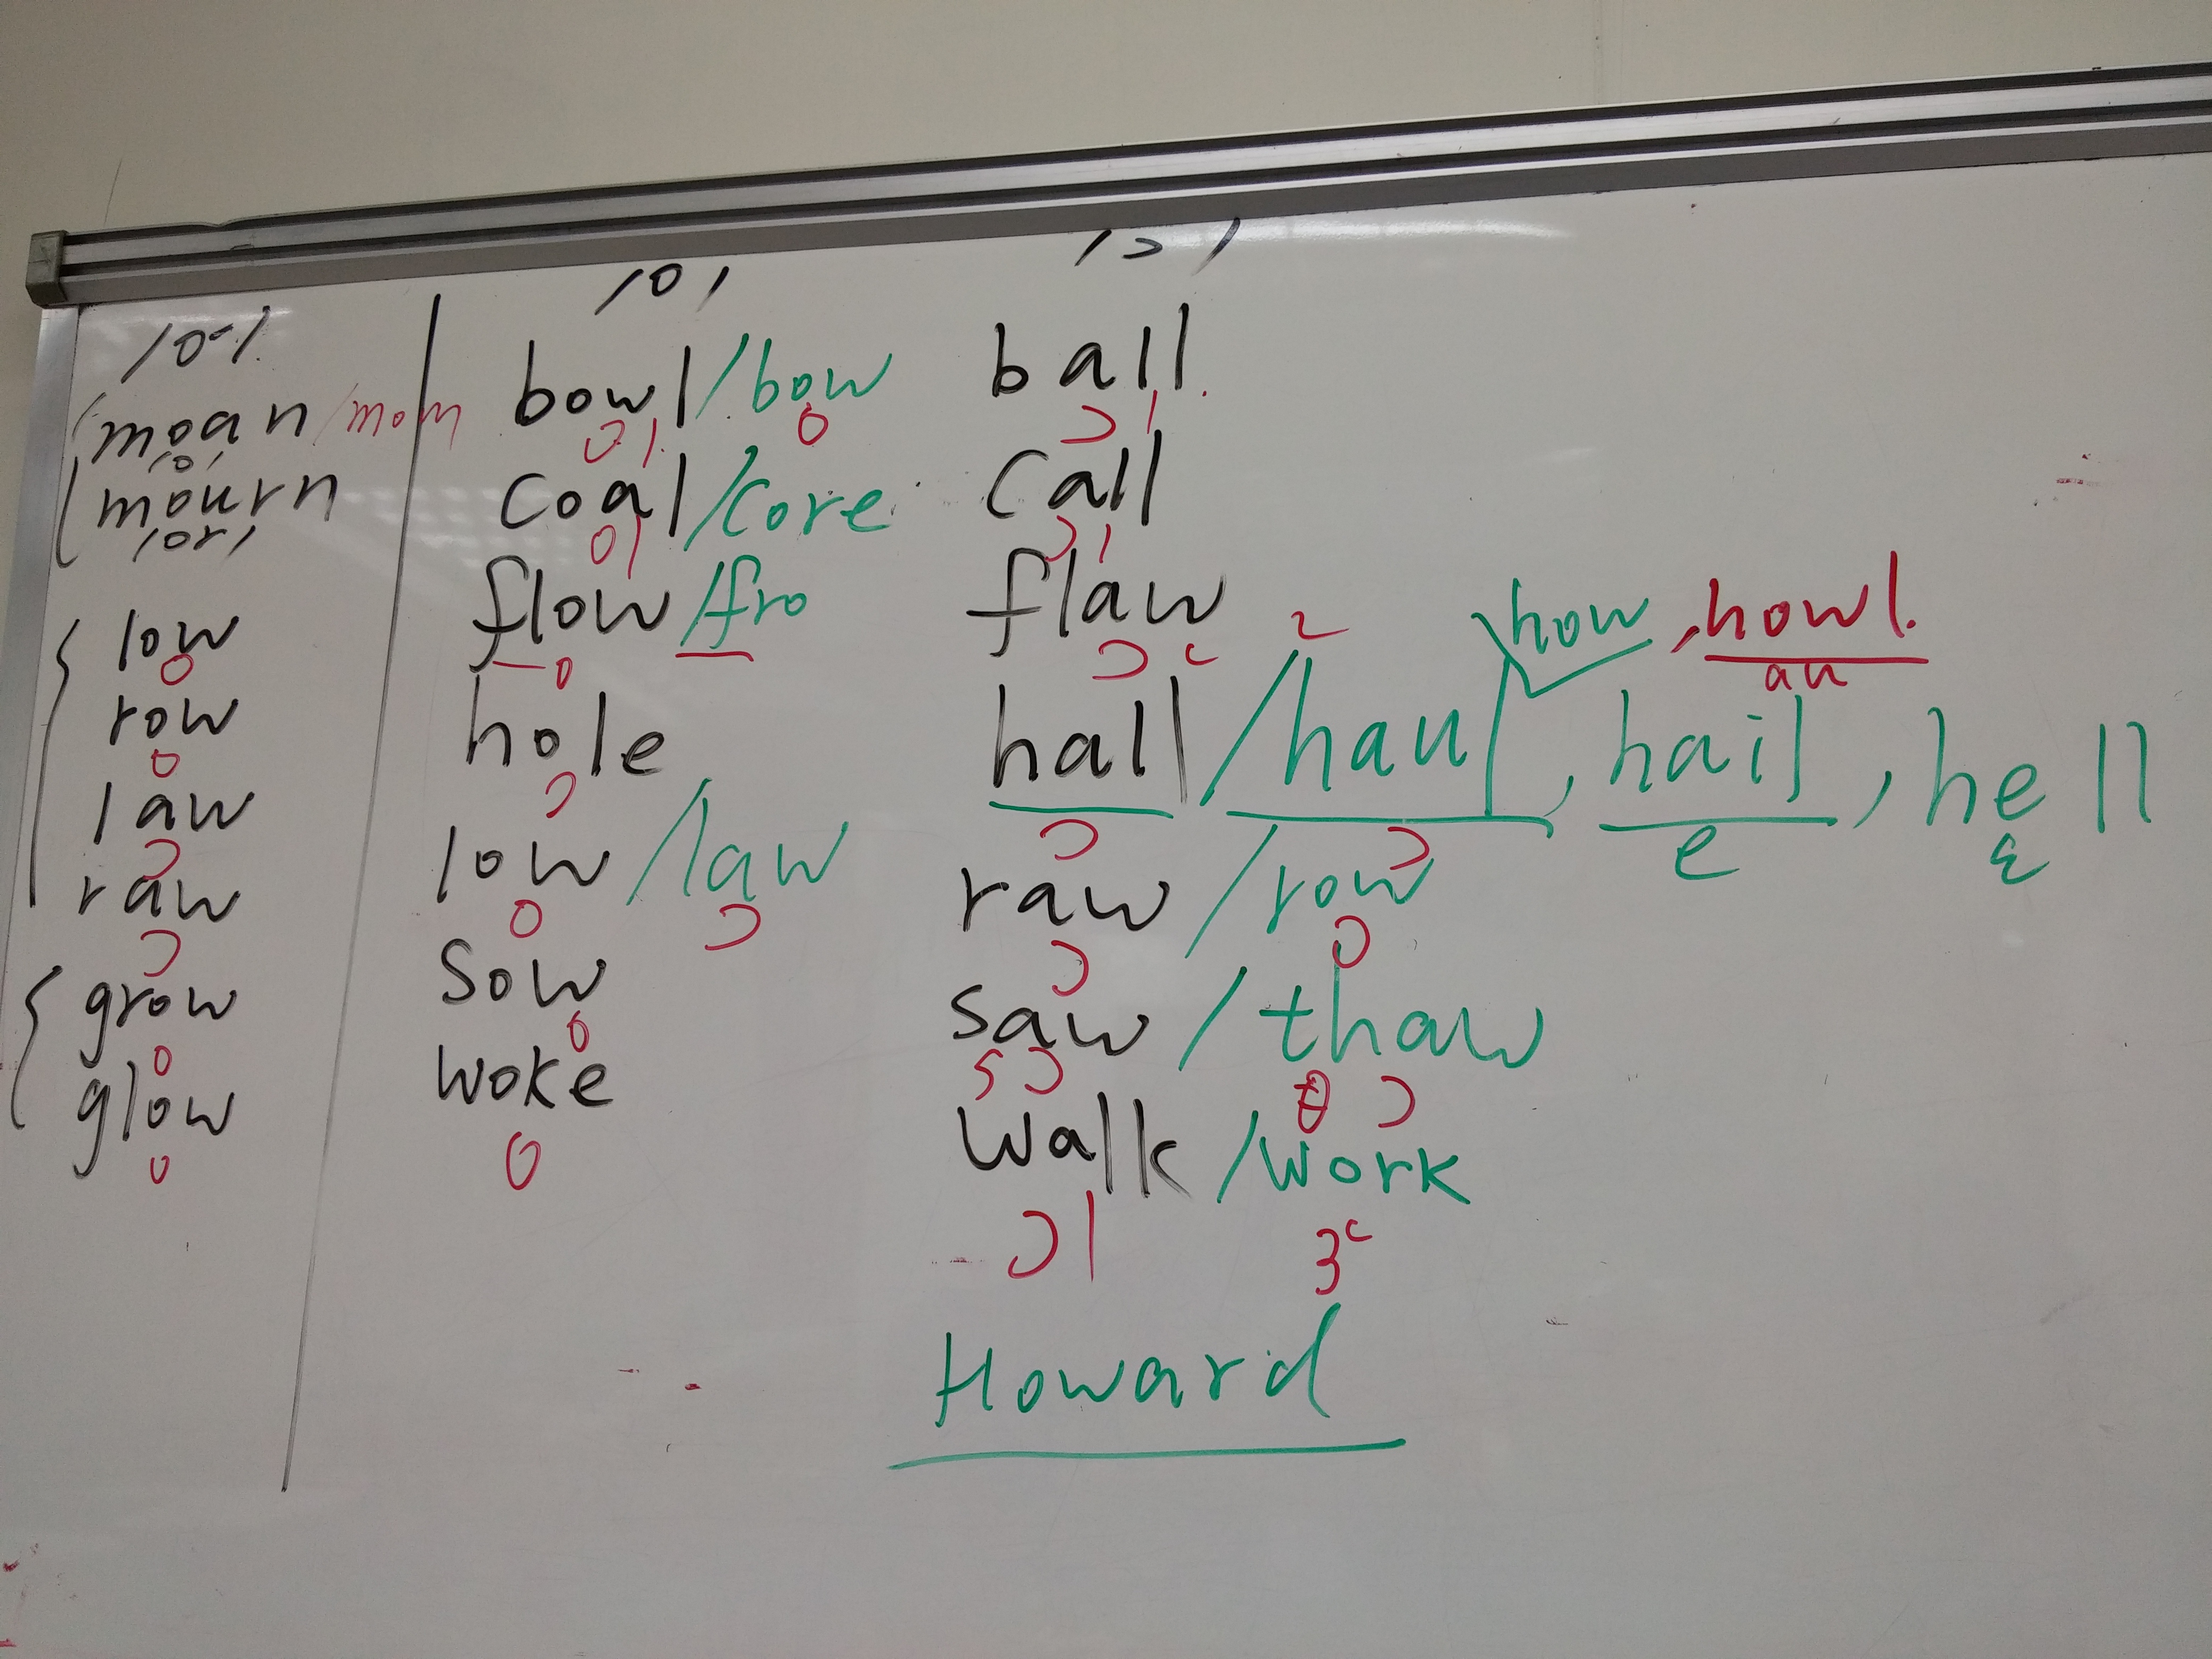 /o-/
moan/mom
/o/
mourn
/or/
low
o
row
o
law
ɔ
raw
ɔ
grow
o
glow
o
/o/
bowl/bow
ol o
coal/core
ol
flow/fro
o
hole
ɔ
low/law
o ɔ
sow
o
woke
o
/ɔ/
ball
ɔ l
call
ɔ l
flaw
ɔ
how, howl.
au
hall/haul, hail, hell
ɔ ɔ e ɛ
raw/row
ɔ o
saw/thaw
s ɔ θ ɔ
walk/work
ɔ l ɜ
Howard